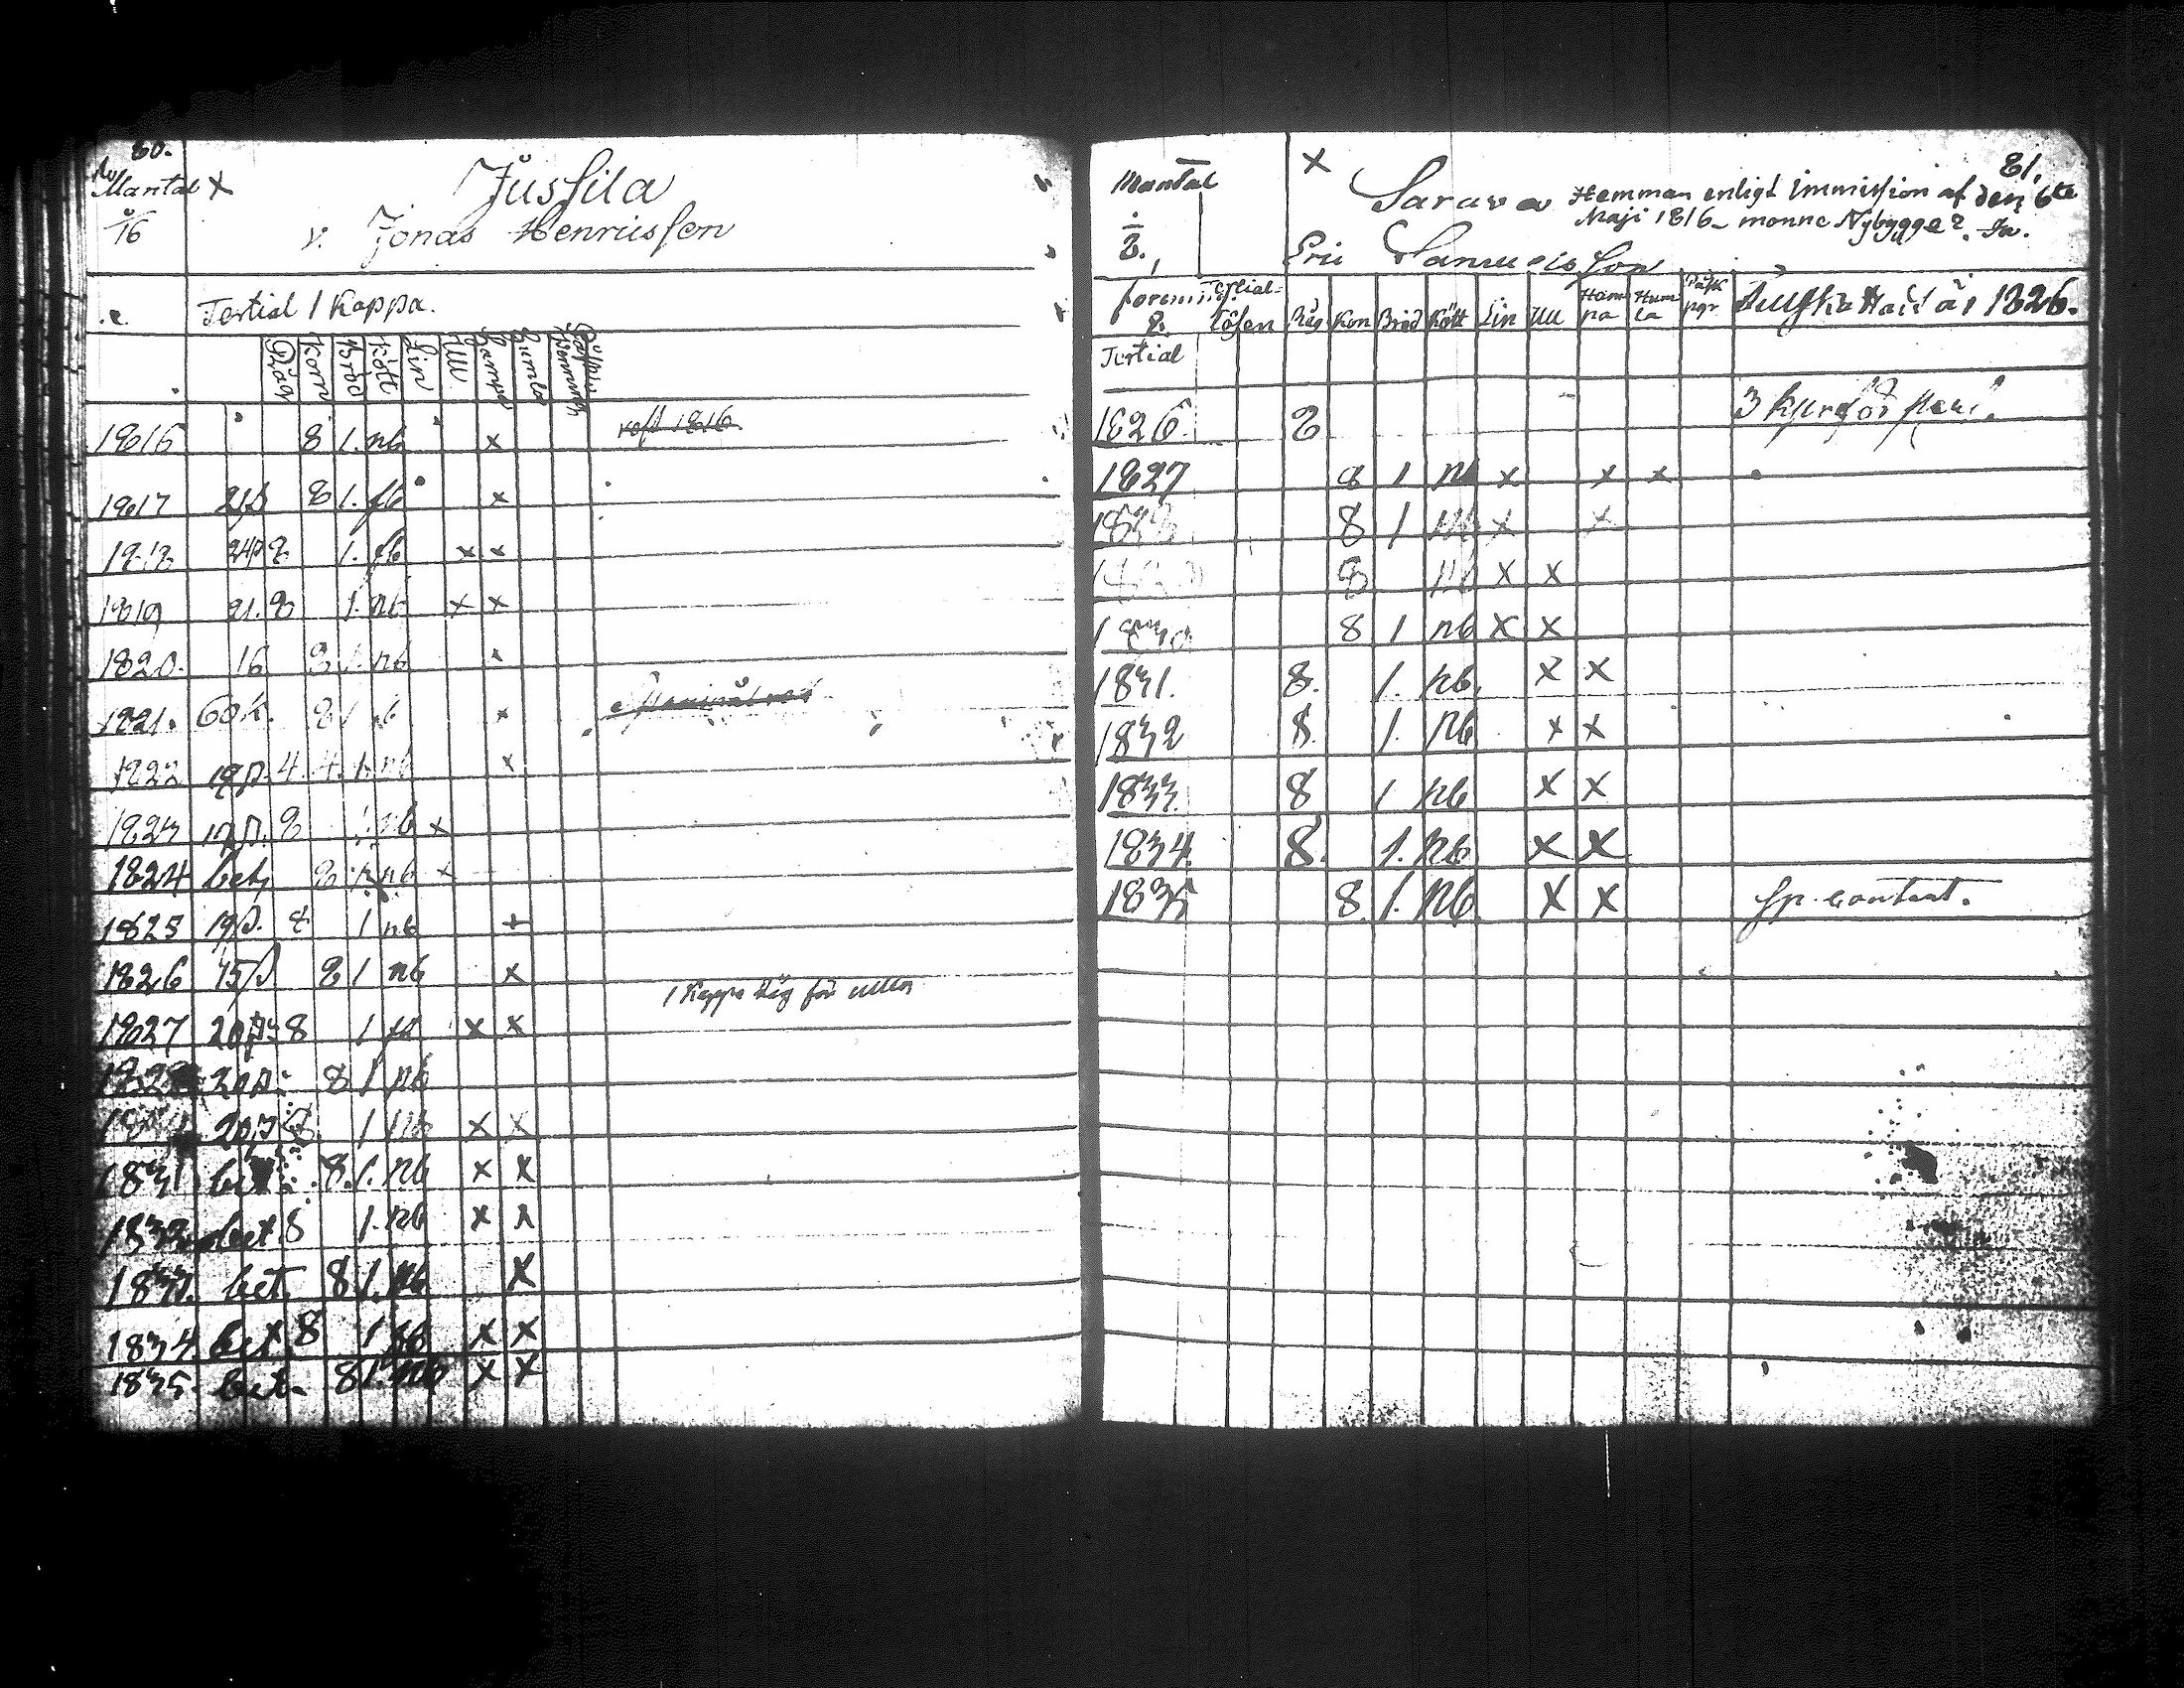 80.
Mantal X
1/16
Jussila
v. Jonas Henricsson
Tertial 1 Kappa.
Råg Korn Bröd Kött Lin Ull Hampa Humla
1816 8 1. nb x
1817 8 1. fb x
1818 8 1. fb x x
1819 21. 8 1. nb x x
1820. 16 8 1. nb x
1821. 60 k. 8 1 nb x
1822 4. 4. 1. nb x
1823 8 1. nb x
1824 bet 8 1. nb x
1825 8 1 nb x
1826 8 1 nb x
1 Kappe Råg för ullen
1827 8 1 fb x x
1828 8 1 nb
8 1 nb x x
1831 bet 8. 1. nb x x
1832 bet 8 1. nb x x
1833. bet. 8 1. nb x
1834 bet 8 1 nb x x
1835. bet. 8 1. nb x x
81.
Mantal X Sarava Hemman enligt Immission af den 6te
Maji 1816 – monne Nybygge?
1/8.
Eric Samuelsson
Tertial-
lösen Råg Korn Bröd Kött Lin Ull Hampa Humla Påsk pgr. år 1826.
Tertial
1826. 8 3 kpr för
1827 8 1 nb x x x
1828 8 1 nb x x
8 nb x x
1830 8 1 nb x x
1831. 8. 1. nb. x x
1832 8. 1. nb x x
1833 8 1 nb x x
1834. 8. 1. nb x x
1835 8. 1. nb x x sp. contract.